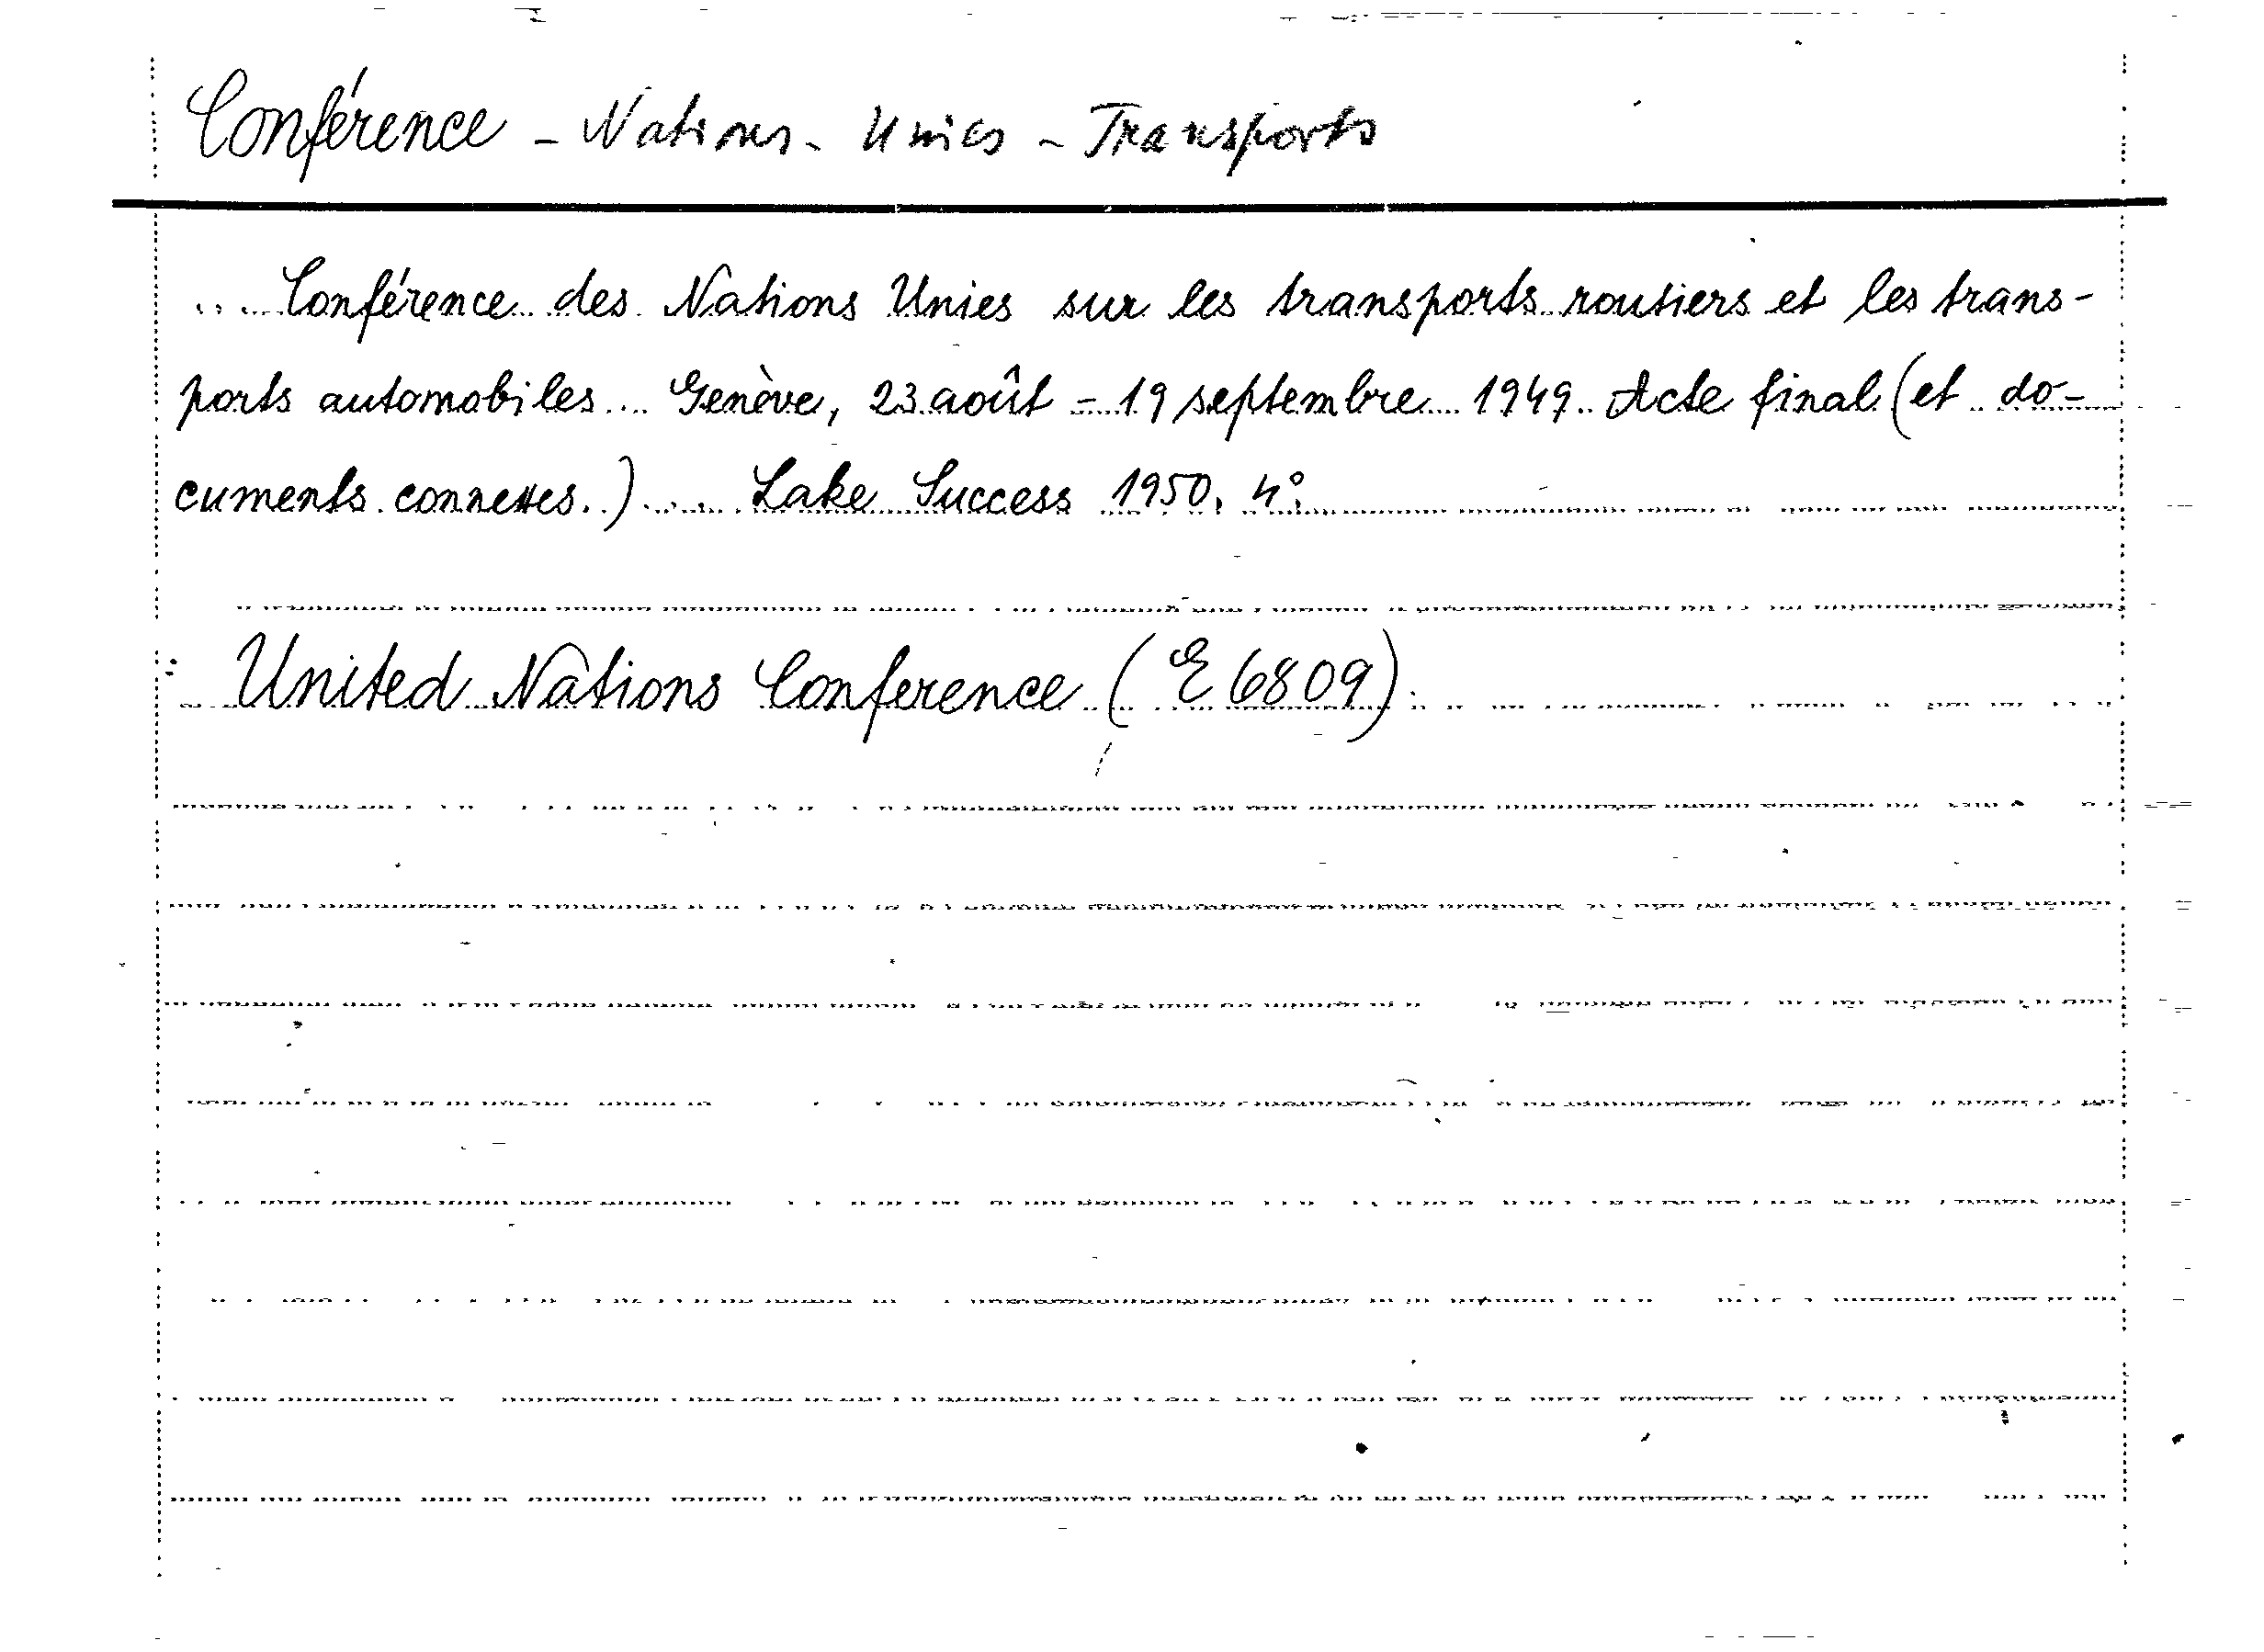 Conférence - Nations - Unies - Transports
... Conférence des Nations Unies sur les transports routiers et les trans-
ports automobiles... Genève, 23 août - 19 septembre 1949. Acte final (et do-
cuments connexes.) ... Lake Success 1950. 4°.
: United Nations Conference (E 6809)